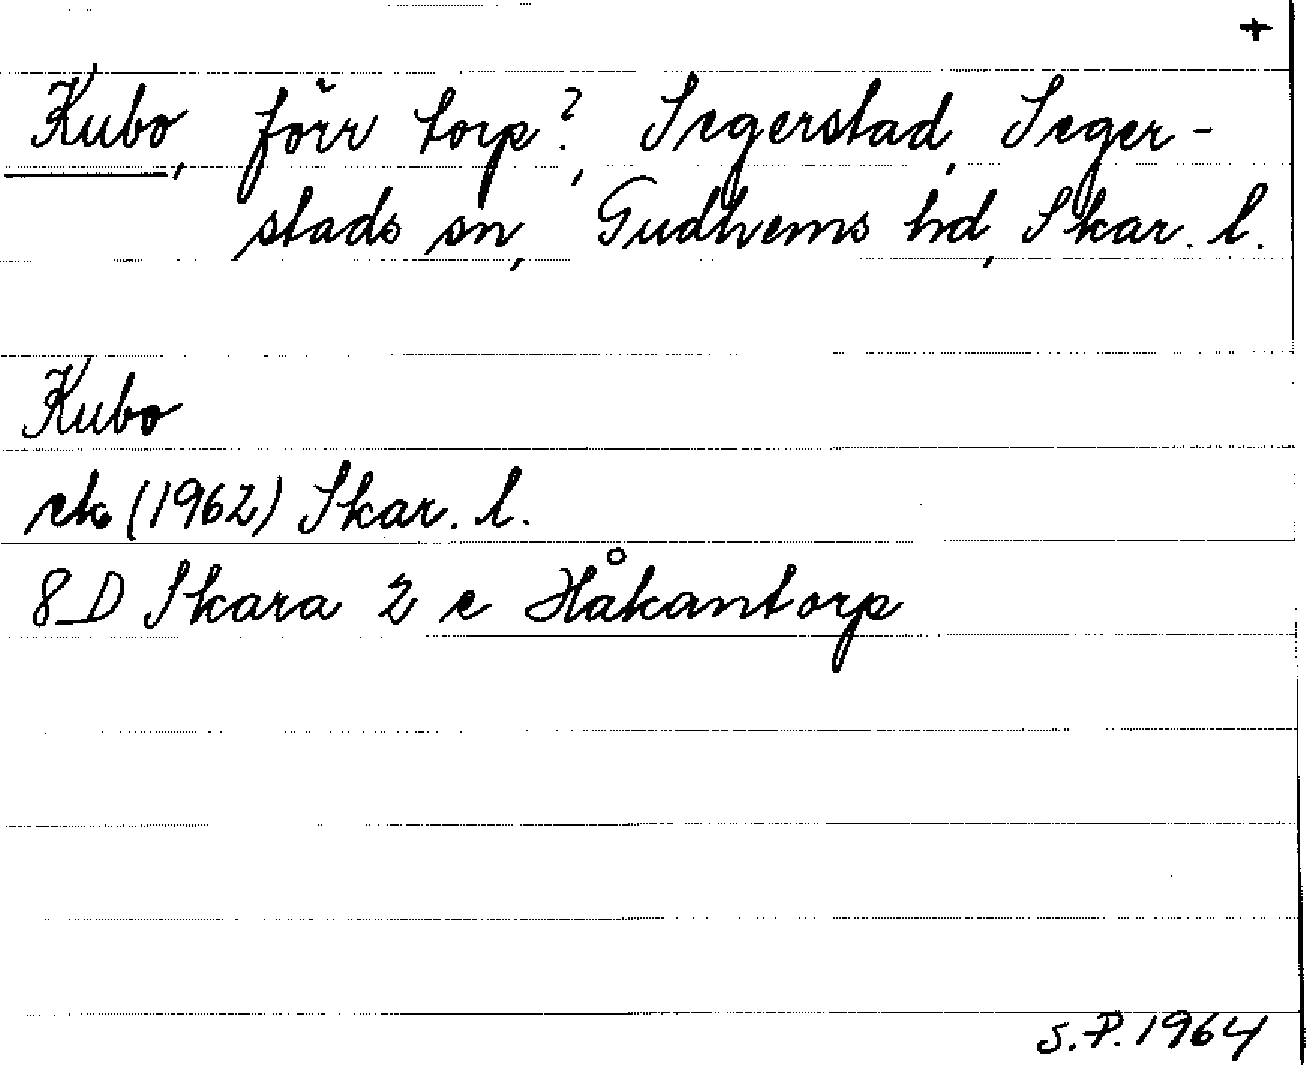 +
Kubo, förr torp?, Segerstad, Seger-
stads sn, Gudhems hd, Skar. l.
Kubo
ek (1962) Skar. l.
8D Skara 2 e Håkantorp
S.P. 1964